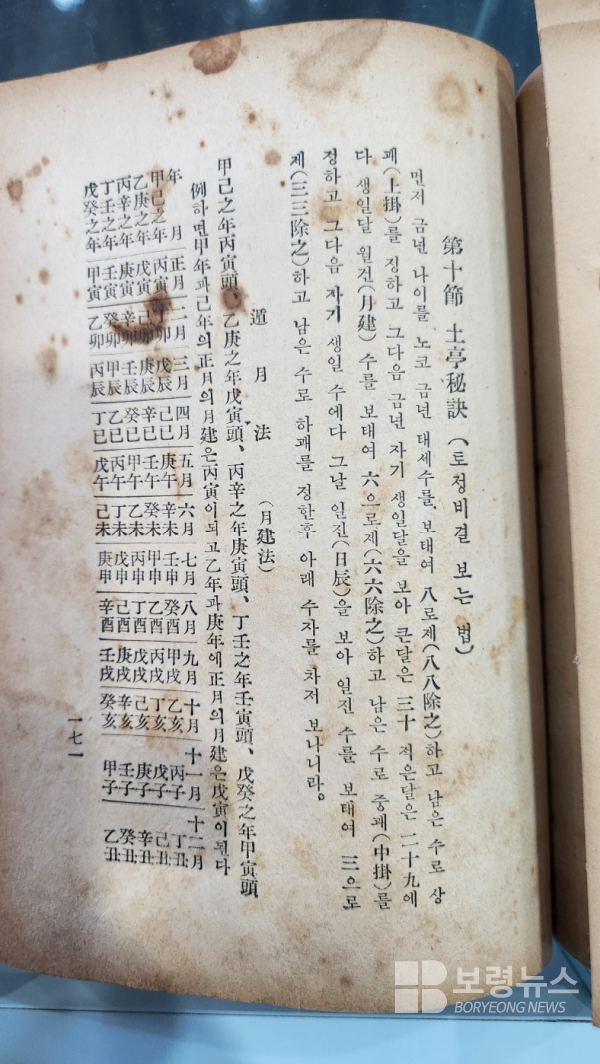 第十節 土亭秘訣 (토정비결 보는 법)
먼저 금년 나이를 노코 금년 태세수를 보태여 八로제(八八除之)하고 남은 수로 상
괘(上掛)를 정하고 그다음 금년 자기 생일달을 보아 큰달은 三十 적은달은 二十九에
다 생일달 월건(月建) 수를 보태여 六으로제(六六除之)하고 남은 수로 중괘(中掛)를
정하고 그다음 자기 생일 수에다 그날 일진(日辰)을 보아 일진 수를 보태여 三으로
제(三三除之)하고 남은 수로 하괘를 정한후 아래 수자를 차저 보나니라。
遁月法 (月建法)
甲己之年丙寅頭、乙庚之年戊寅頭、丙辛之年庚寅頭、丁壬之年壬寅頭、戊癸之年甲寅頭
例하면甲年과己年의正月의月建은丙寅이되고乙年과庚年에正月의月建은戊寅이된다
年 月 正月 二月 三月 四月 五月 六月 七月 八月 九月 十月 十一月 十二月
甲己之年 丙寅 丁卯 戊辰 己巳 庚午 辛未 壬申 癸酉 甲戌 乙亥 丙子 丁丑
乙庚之年 戊寅 己卯 庚辰 辛巳 壬午 癸未 甲申 乙酉 丙戌 丁亥 戊子 己丑
丙辛之年 庚寅 辛卯 壬辰 癸巳 甲午 乙未 丙申 丁酉 戊戌 己亥 庚子 辛丑
丁壬之年 壬寅 癸卯 甲辰 乙巳 丙午 丁未 戊申 己酉 庚戌 辛亥 壬子 癸丑
戊癸之年 甲寅 乙卯 丙辰 丁巳 戊午 己未 庚申 辛酉 壬戌 癸亥 甲子 乙丑
一七一
보령뉴스
BORYEONG NEWS